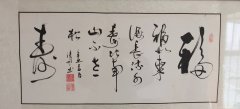 福
福如東
海長流水
壽比南
山不老
松
寿